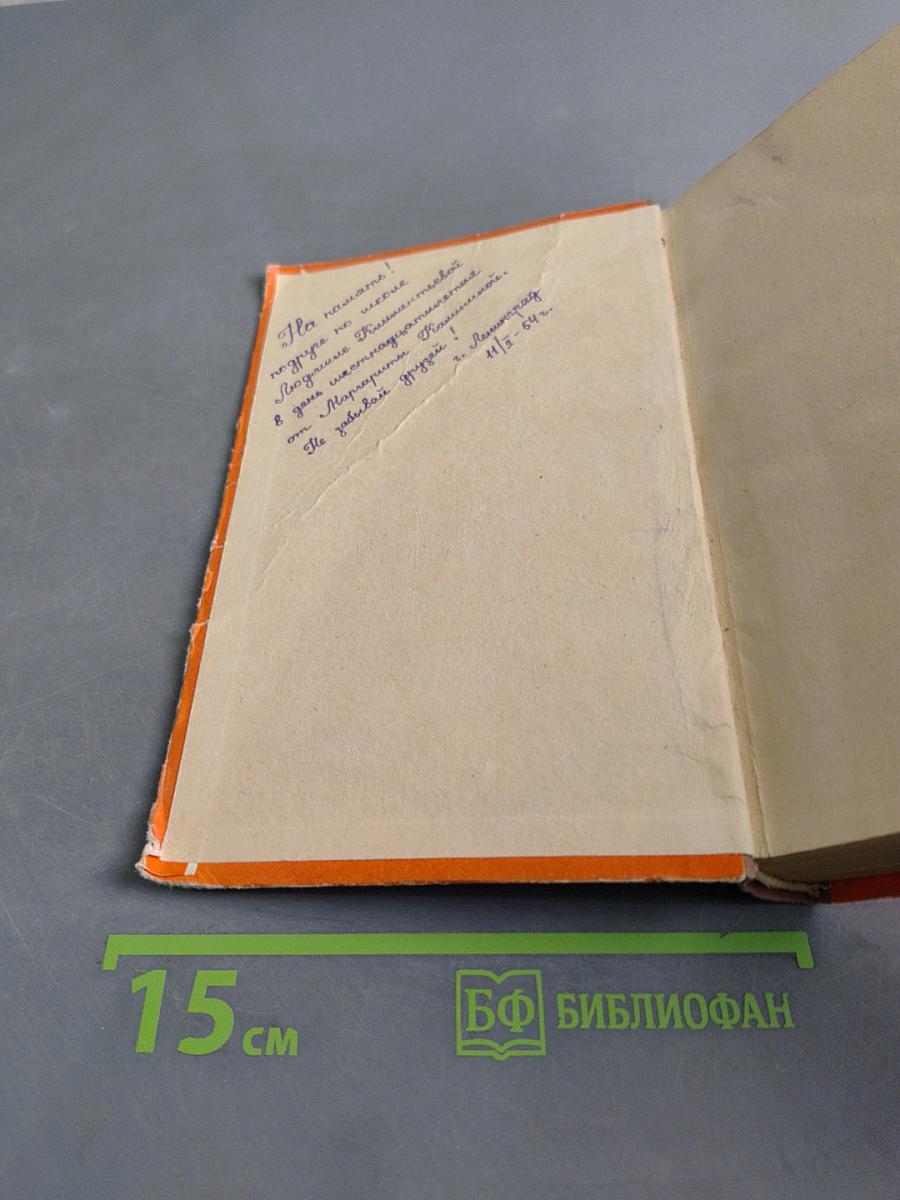 На память!
подруге по школе
Людмиле Климентьевой
в день шестнадцатилетия
от Маргариты Калининой.
Не забывай друзей!
г. Ленинград
11/II-54г.
15 см
БФ БИБЛИОФАН